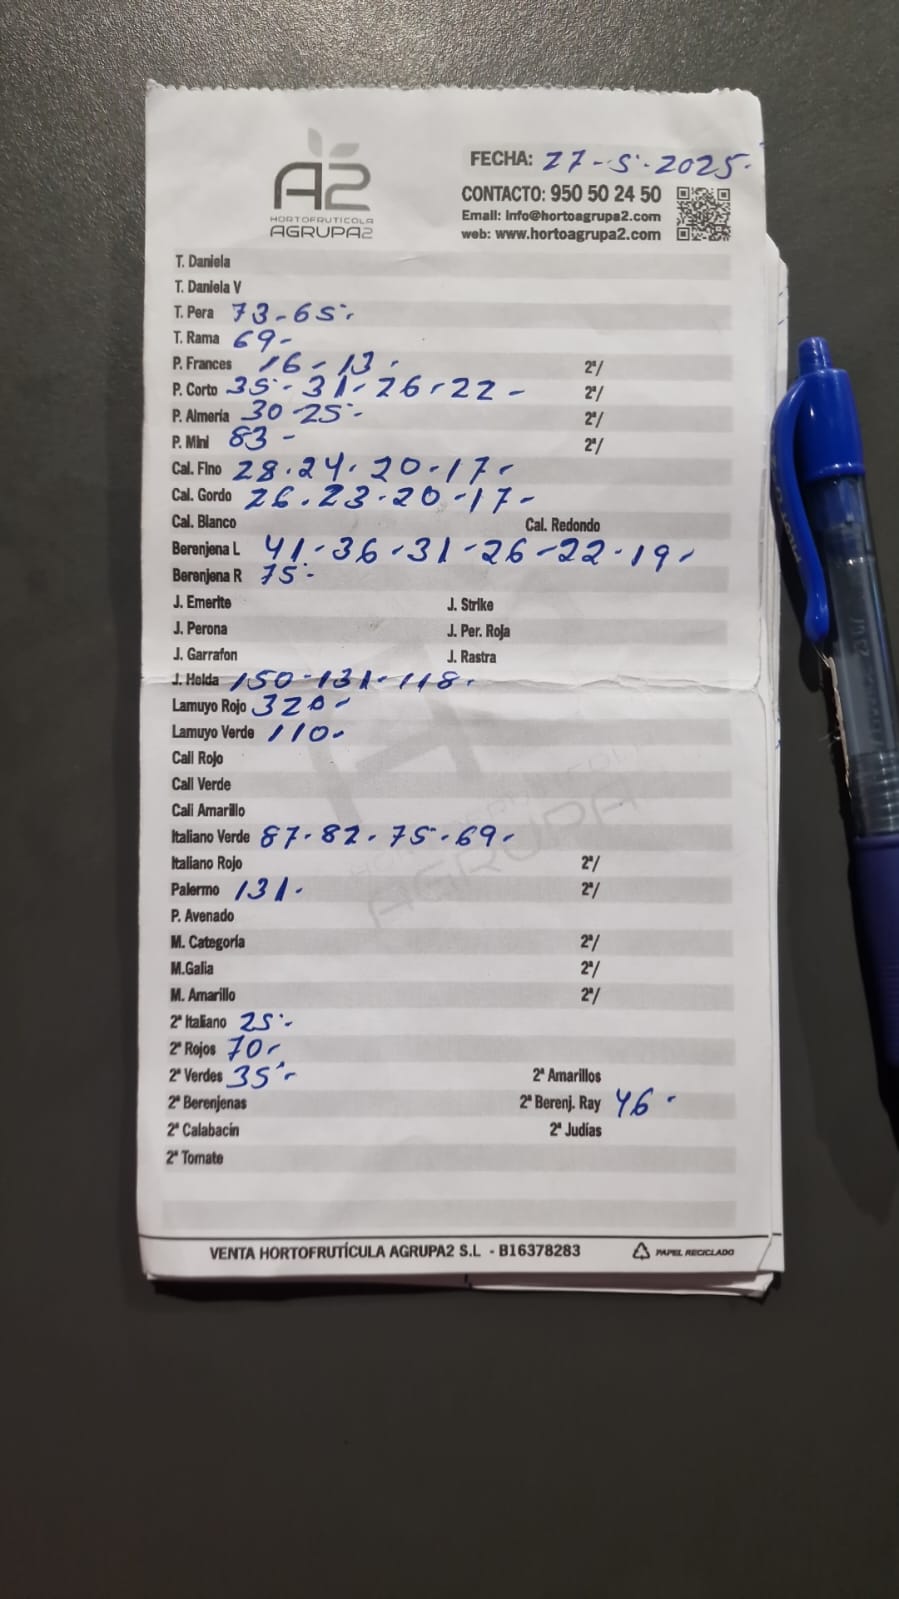 A2
HORTOFRUTICOLA
AGRUPA2
FECHA: 27-5-2025.
CONTACTO: 950 50 24 50
Email: info@hortoagrupa2.com
web: www.hortoagrupa2.com
T. Daniela
T. Daniela V
T. Pera 73-65.
T. Rama 69-
P. Frances 16-13. 2ª/
P. Corto 35-31-26-22- 2ª/
P. Almería 30-25- 2ª/
P. Mini 83- 2ª/
Cal. Fino 28.24.20-17-
Cal. Gordo 26.23-20-17-
Cal. Blanco Cal. Redondo
Berenjena L 41-36-31-26-22-19-
Berenjena R 75-
J. Emerite J. Strike
J. Perona J. Per. Roja
J. Garrafon J. Rastra
J. Helda 150-131-118.
Lamuyo Rojo 320-
Lamuyo Verde 110-
Cali Rojo
Cali Verde
Cali Amarillo
Italiano Verde 87-82-75-69-
Italiano Rojo 2ª/
Palermo 131- 2ª/
P. Avenado
M. Categoría 2ª/
M.Galia 2ª/
M. Amarillo 2ª/
2ª Italiano 25-
2ª Rojos 70-
2ª Verdes 35- 2ª Amarillos
2ª Berenjenas 2ª Berenj. Ray 46-
2ª Calabacín 2ª Judías
2ª Tomate
VENTA HORTOFRUTÍCULA AGRUPA2 S.L - B16378283 PAPEL RECICLADO